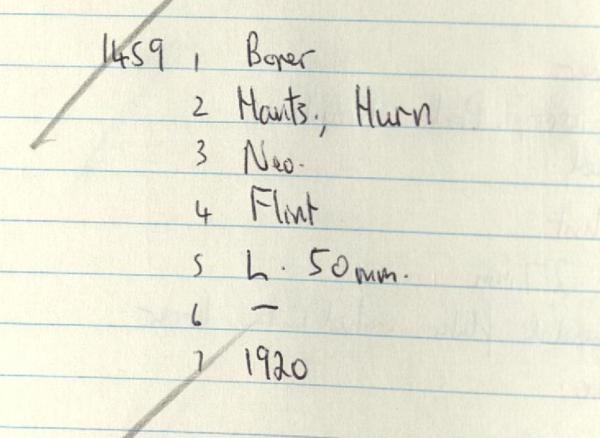 1459 1 Borer
2 Hants., Hurn
3 Neo.
4 Flint
5 L. 50mm.
6 —
7 1920